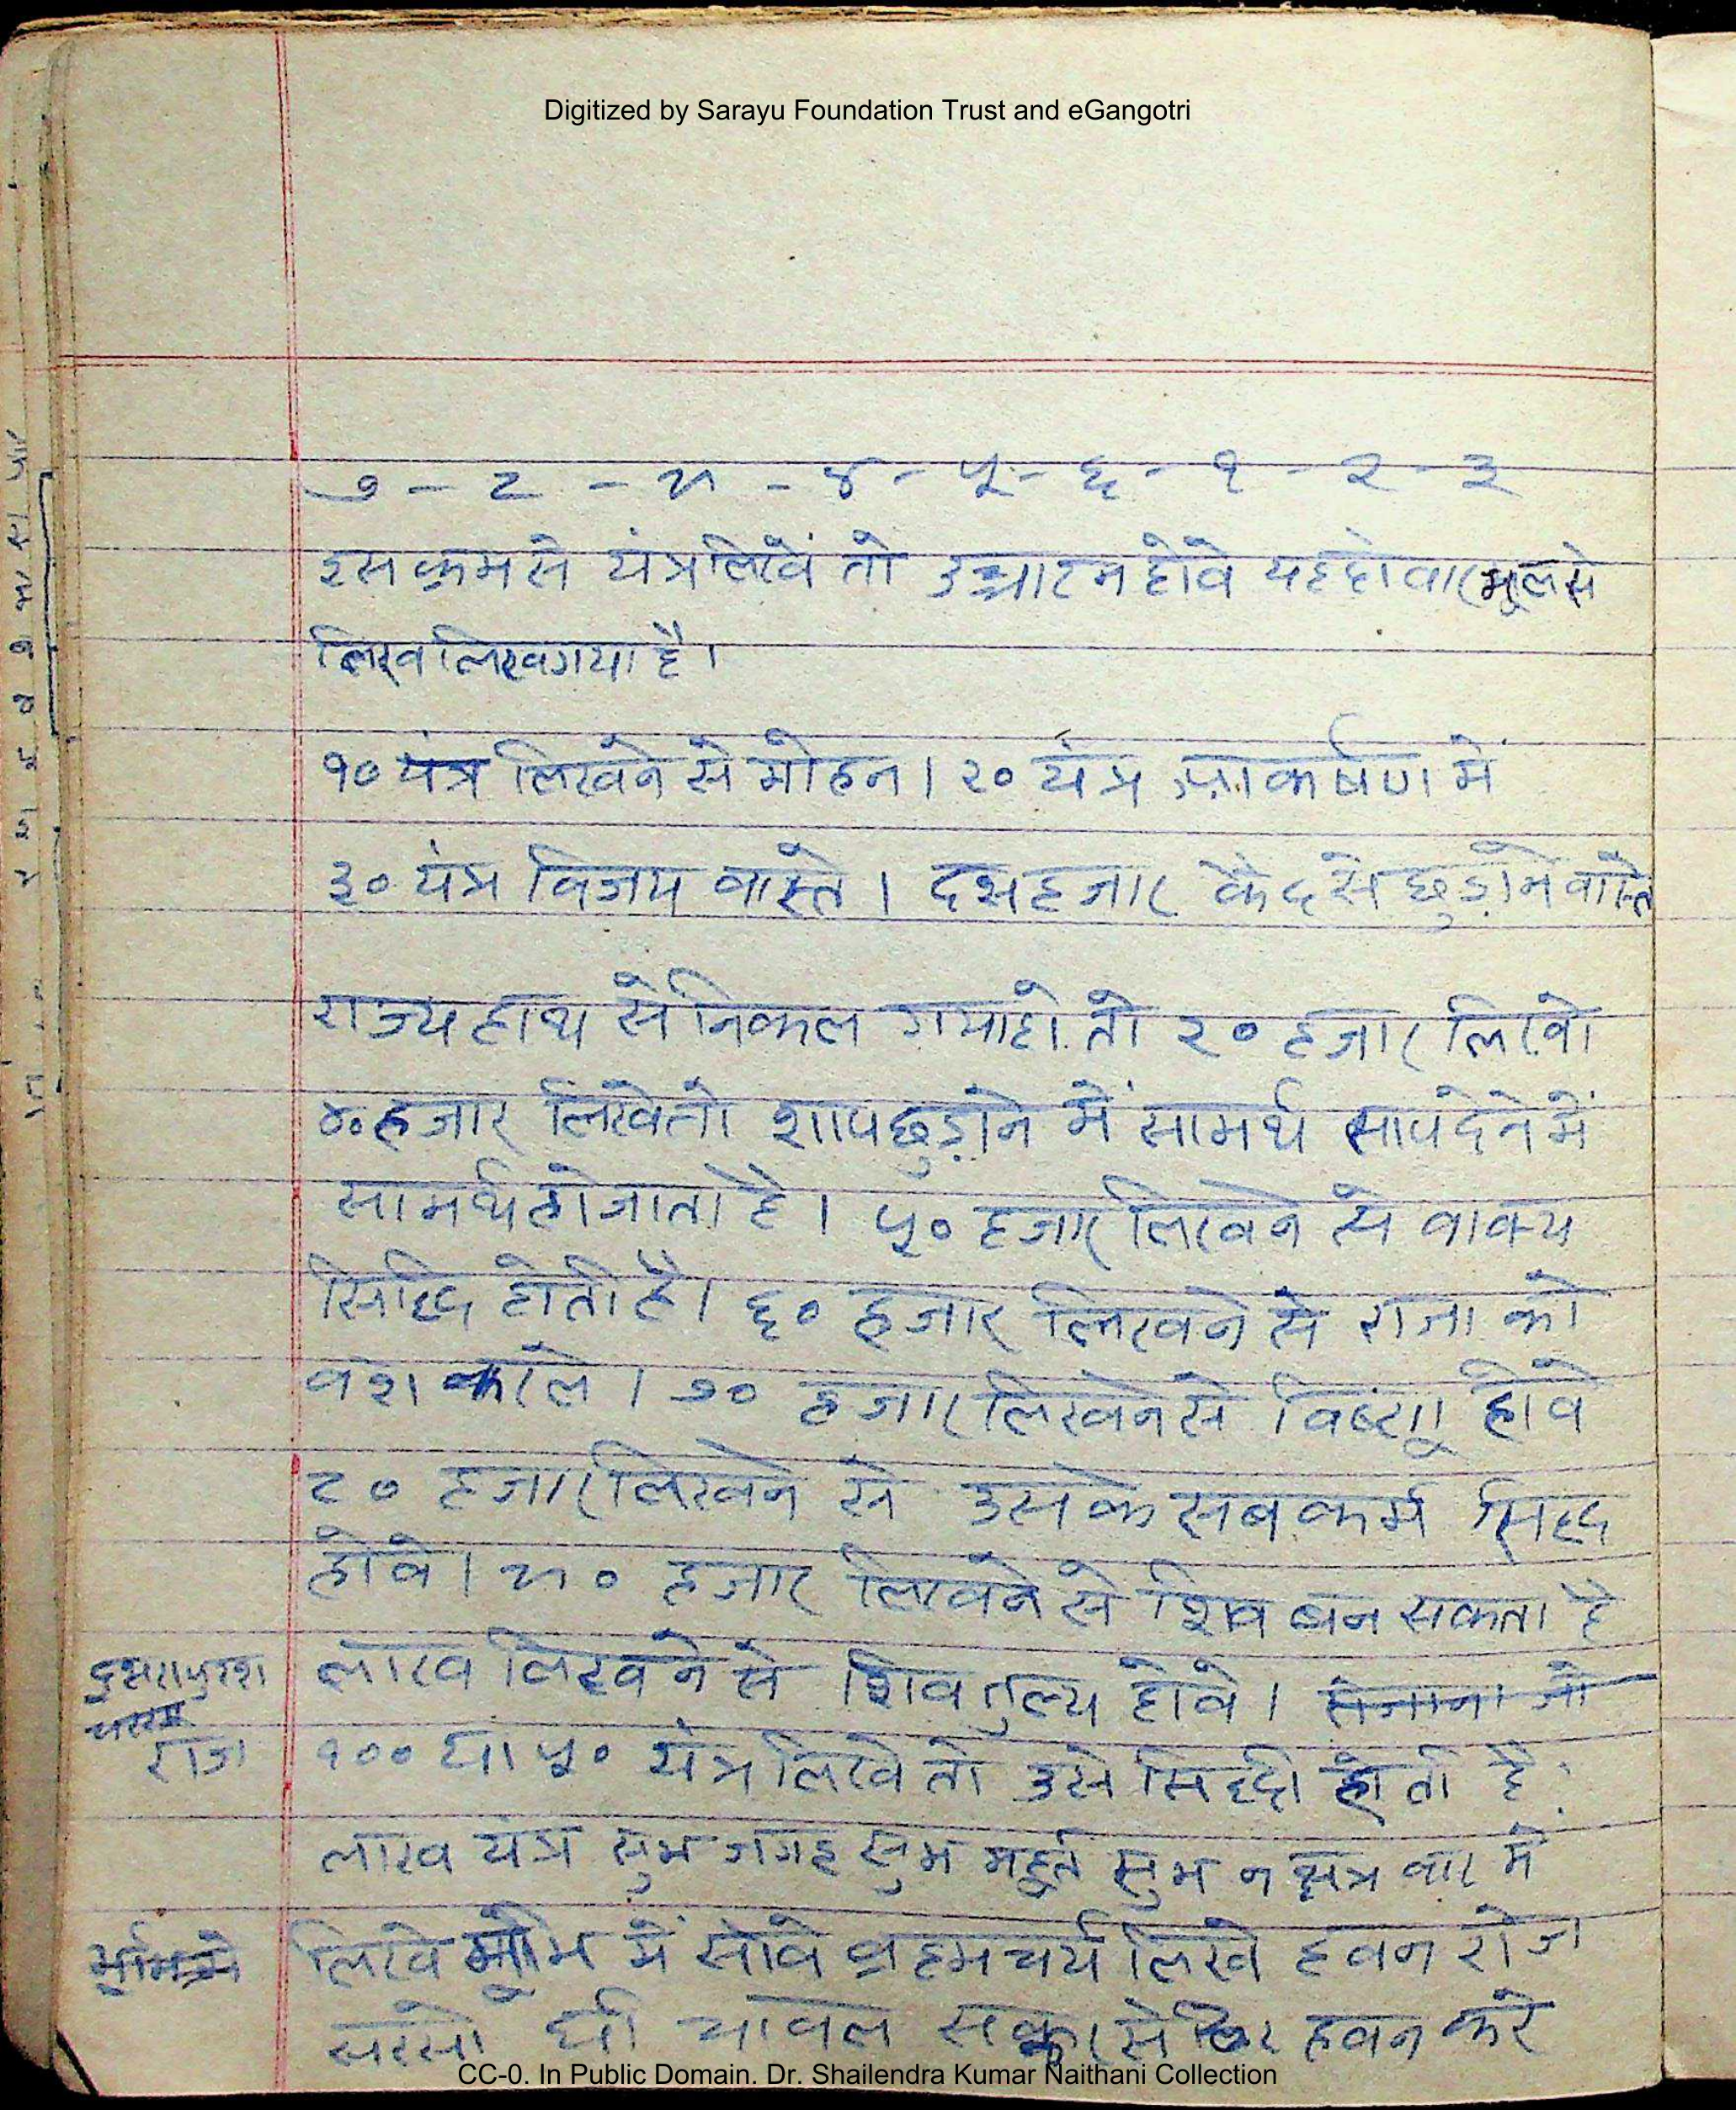 Digitized by Sarayu Foundation Trust and eGangotri
७ - ८ - ९ - ४ - ५ - ६ - १ - २ - ३
इस क्रम से यंत्र लिखें तो उच्चाटन होवे यह दो वार भूल से
लिख लिखगया है।
१० यंत्र लिखने से मोहन। २० यंत्र आकर्षण में
३० यंत्र विजय वास्ते। दसहजार कैद से छुड़ाने वास्ते
राज्य हाथ से निकल गया हो तो २० हजार लिखे
४० हजार लिखे तो शाप छुड़ाने में सामर्थ साप देने में
सामर्थ हो जाता है। ५० हजार लिखने से वाक्य
सिद्धि होती है। ६० हजार लिखने से राजा को
वश करले। ७० हजार लिखने से विष्णु होवे
८० हजार लिखने से उसके सब कर्म सिद्ध
होवे। ९० हजार लिखने से शिव बन सकता है
लाख लिखने से शिव तुल्य होवे।
राज
१०० या ५० यंत्र लिखे तो उसे सिद्दी होती है।
लाख यंत्र सुभ जगह सुभ महूर्त सुभ नक्षत्र वार में
लिखे भूमि में सोवे ब्रहमचर्य लिखे हवन रोज
सरसो घी चावल सक्कर से हवन करे
CC-0. In Public Domain. Dr. Shailendra Kumar Naithani Collection